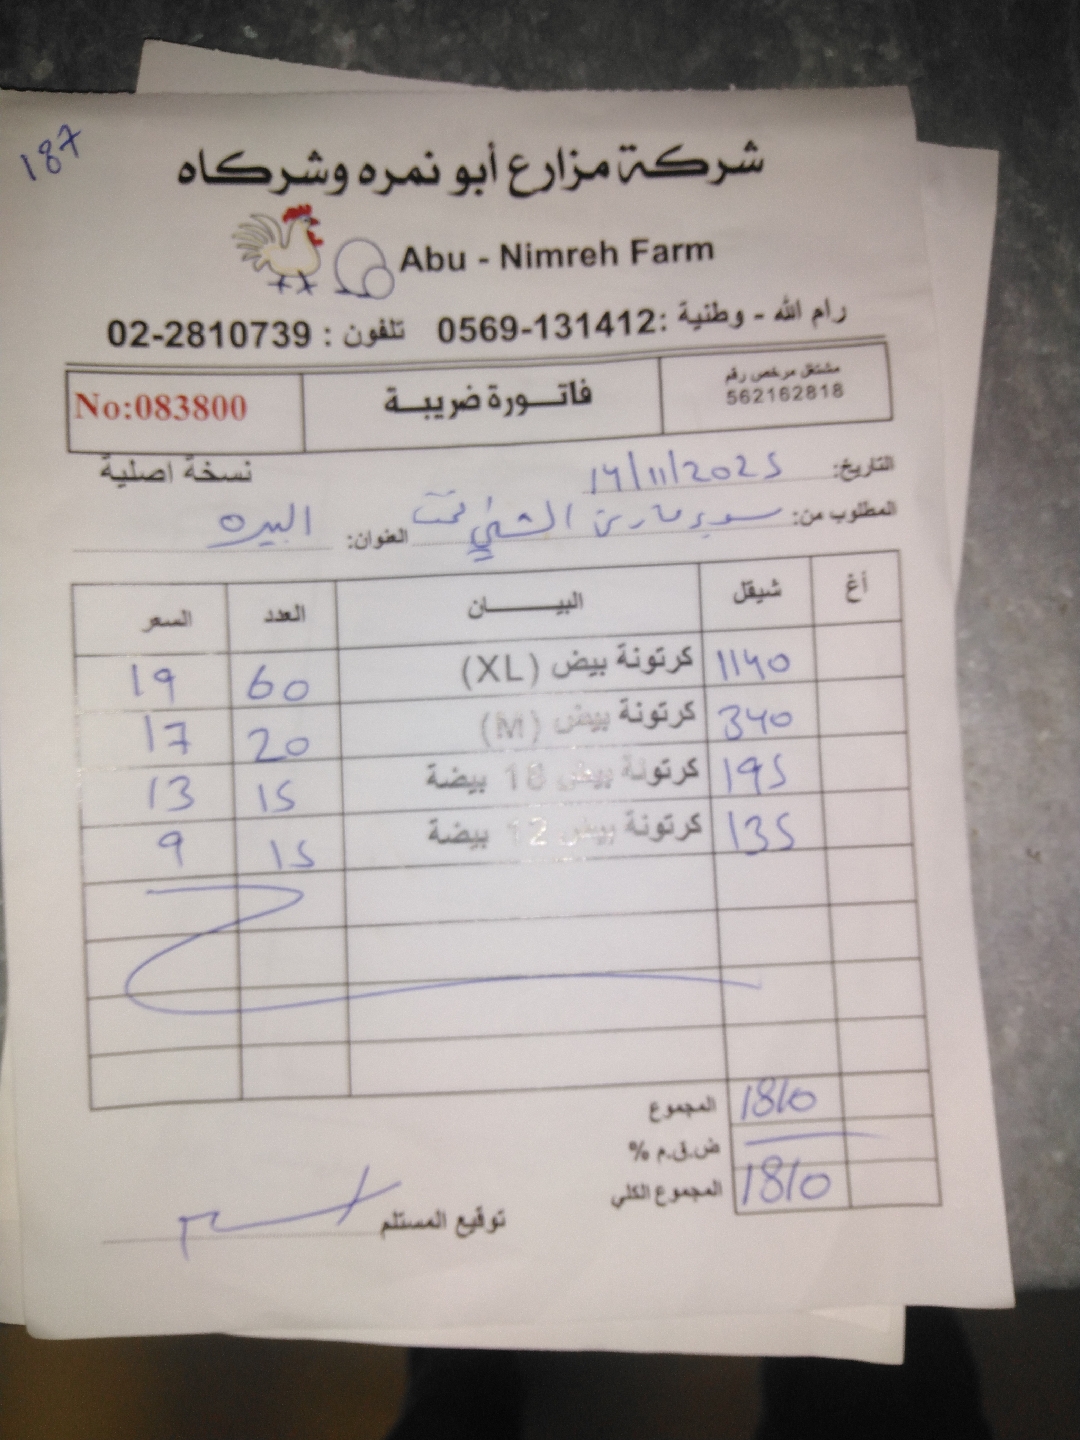 187
شركة مزارع أبو نمره وشركاه
Abu - Nimreh Farm
رام الله - وطنية :0569-131412 تلفون : 02-2810739
مشتغل مرخص رقم
562162818
فاتـــورة ضريبـــة
No:083800
نسخة اصلية
التاريخ: /11/2025
المطلوب من: سوبر ماركت الشني تحت العنوان: البيره
أغ شيقل البيـــــان العدد السعر
1140 كرتونة بيض (XL) 60 19
340 كرتونة بيض (M) 20 17
195 كرتونة بيض 18 بيضة 15 13
135 كرتونة بيض 12 بيضة 15 9
المجموع 1810
ض.ق.م %
المجموع الكلي 1810
توقيع المستلم